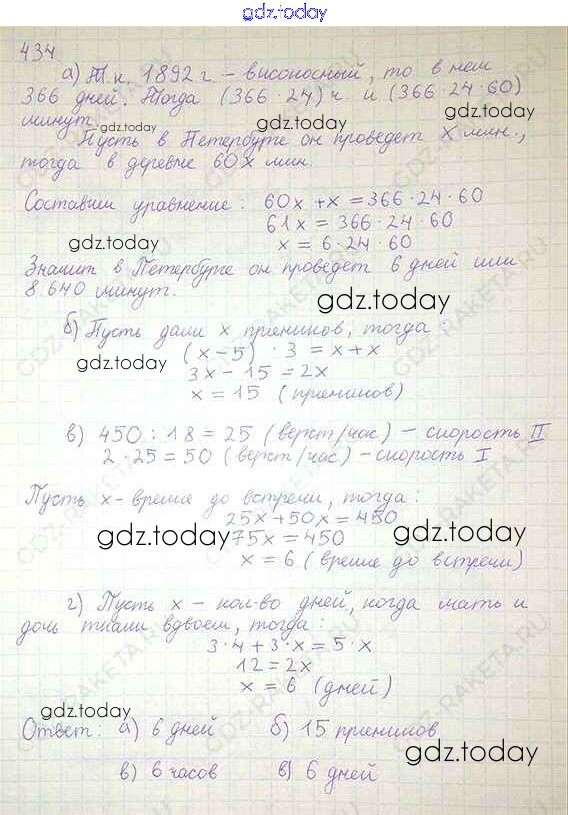 gdz.today
434
а) Т.к. 1892 г. – високосный, то в нем
366 дней. Тогда (366 · 24) ч и (366 · 24 · 60)
минут.
gdz.today
gdz.today
gdz.today
Пусть в Петербурге он проведет x мин.,
тогда в деревне 60x мин.
Составим уравнение: 60x + x = 366 · 24 · 60
61x = 366 · 24 · 60
gdz.today
x = 6 · 24 · 60
Значит в Петербурге он проведет 6 дней или
8 640 минут.
gdz.today
б) Пусть дали x пряников, тогда:
gdz.today
(x – 5) · 3 = x + x
3x – 15 = 2x
x = 15 (пряников)
в) 450 : 18 = 25 (верст/час) – скорость II
2 · 25 = 50 (верст/час) – скорость I
Пусть x - время до встречи, тогда:
25x + 50x = 450
gdz.today
gdz.today
75x = 450
x = 6 (время до встречи)
г) Пусть x – кол-во дней, когда мать и
дочь ткали вдвоем, тогда:
gdz.today
3 · 4 + 3 · x = 5 · x
12 = 2x
x = 6 (дней)
gdz.today
Ответ: а) 6 дней б) 15 пряников
gdz.today
в) 6 часов в) 6 дней
GDZ-RAKETA.RU